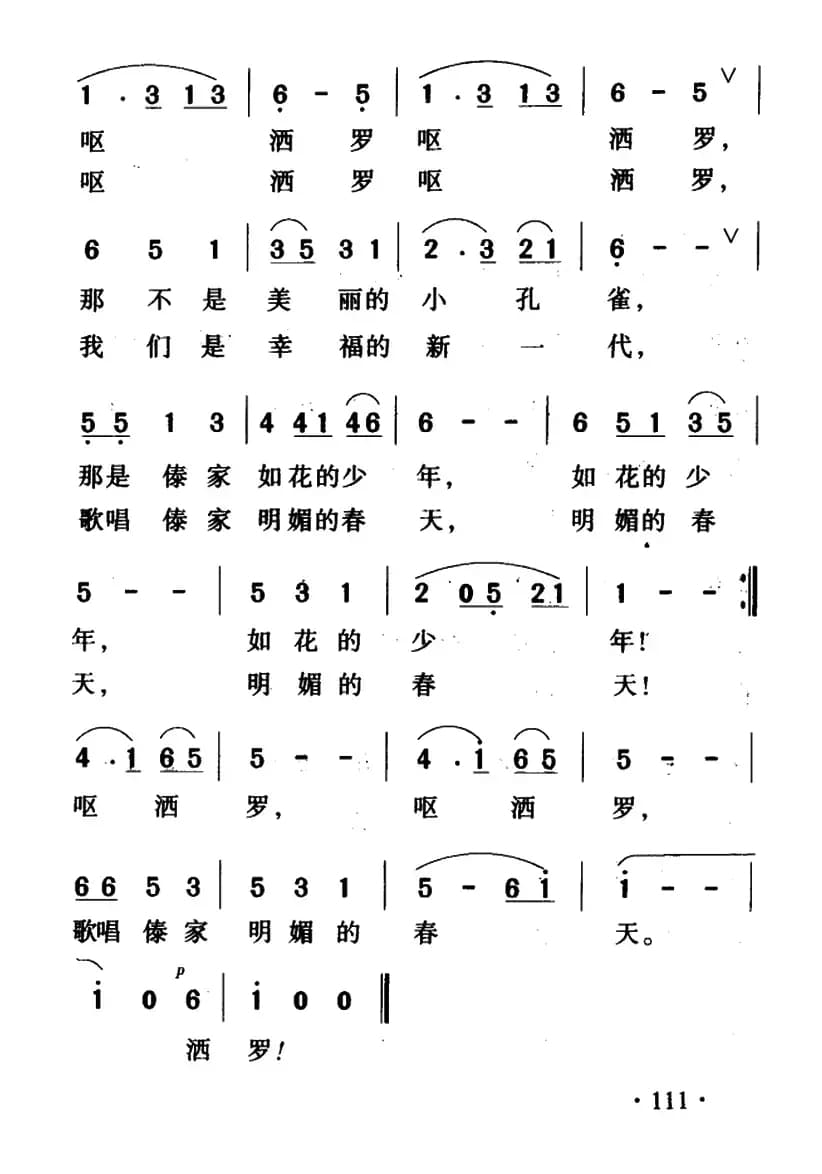 1 · 3 1 3 | 6 - 5 | 1 · 3 1 3 | 6 - 5 ∨ |
呕 洒 罗 呕 洒 罗,
呕 洒 罗 呕 洒 罗,
6 5 1 | 3 5 3 1 | 2 · 3 2 1 | 6 - - ∨ |
那 不 是 美 丽 的 小 孔 雀,
我 们 是 幸 福 的 新 一 代,
5 5 1 3 | 4 4 1 4 6 | 6 - - | 6 5 1 3 5 |
那是 傣 家 如花的少 年, 如 花的 少
歌唱 傣 家 明媚的春 天, 明 媚的 春
5 - - | 5 3 1 | 2 0 5 2 1 | 1 - - :||
年, 如 花 的 少 年!
天, 明 媚 的 春 天!
4 · 1 6 5 | 5 - - | 4 · 1 6 5 | 5 - - |
呕 洒 罗, 呕 洒 罗,
6 6 5 3 | 5 3 1 | 5 - 6 1 | 1 - - |
歌唱 傣 家 明 媚 的 春 天。
p
1 0 6 | 1 0 0 ||
洒 罗!
· 111 ·